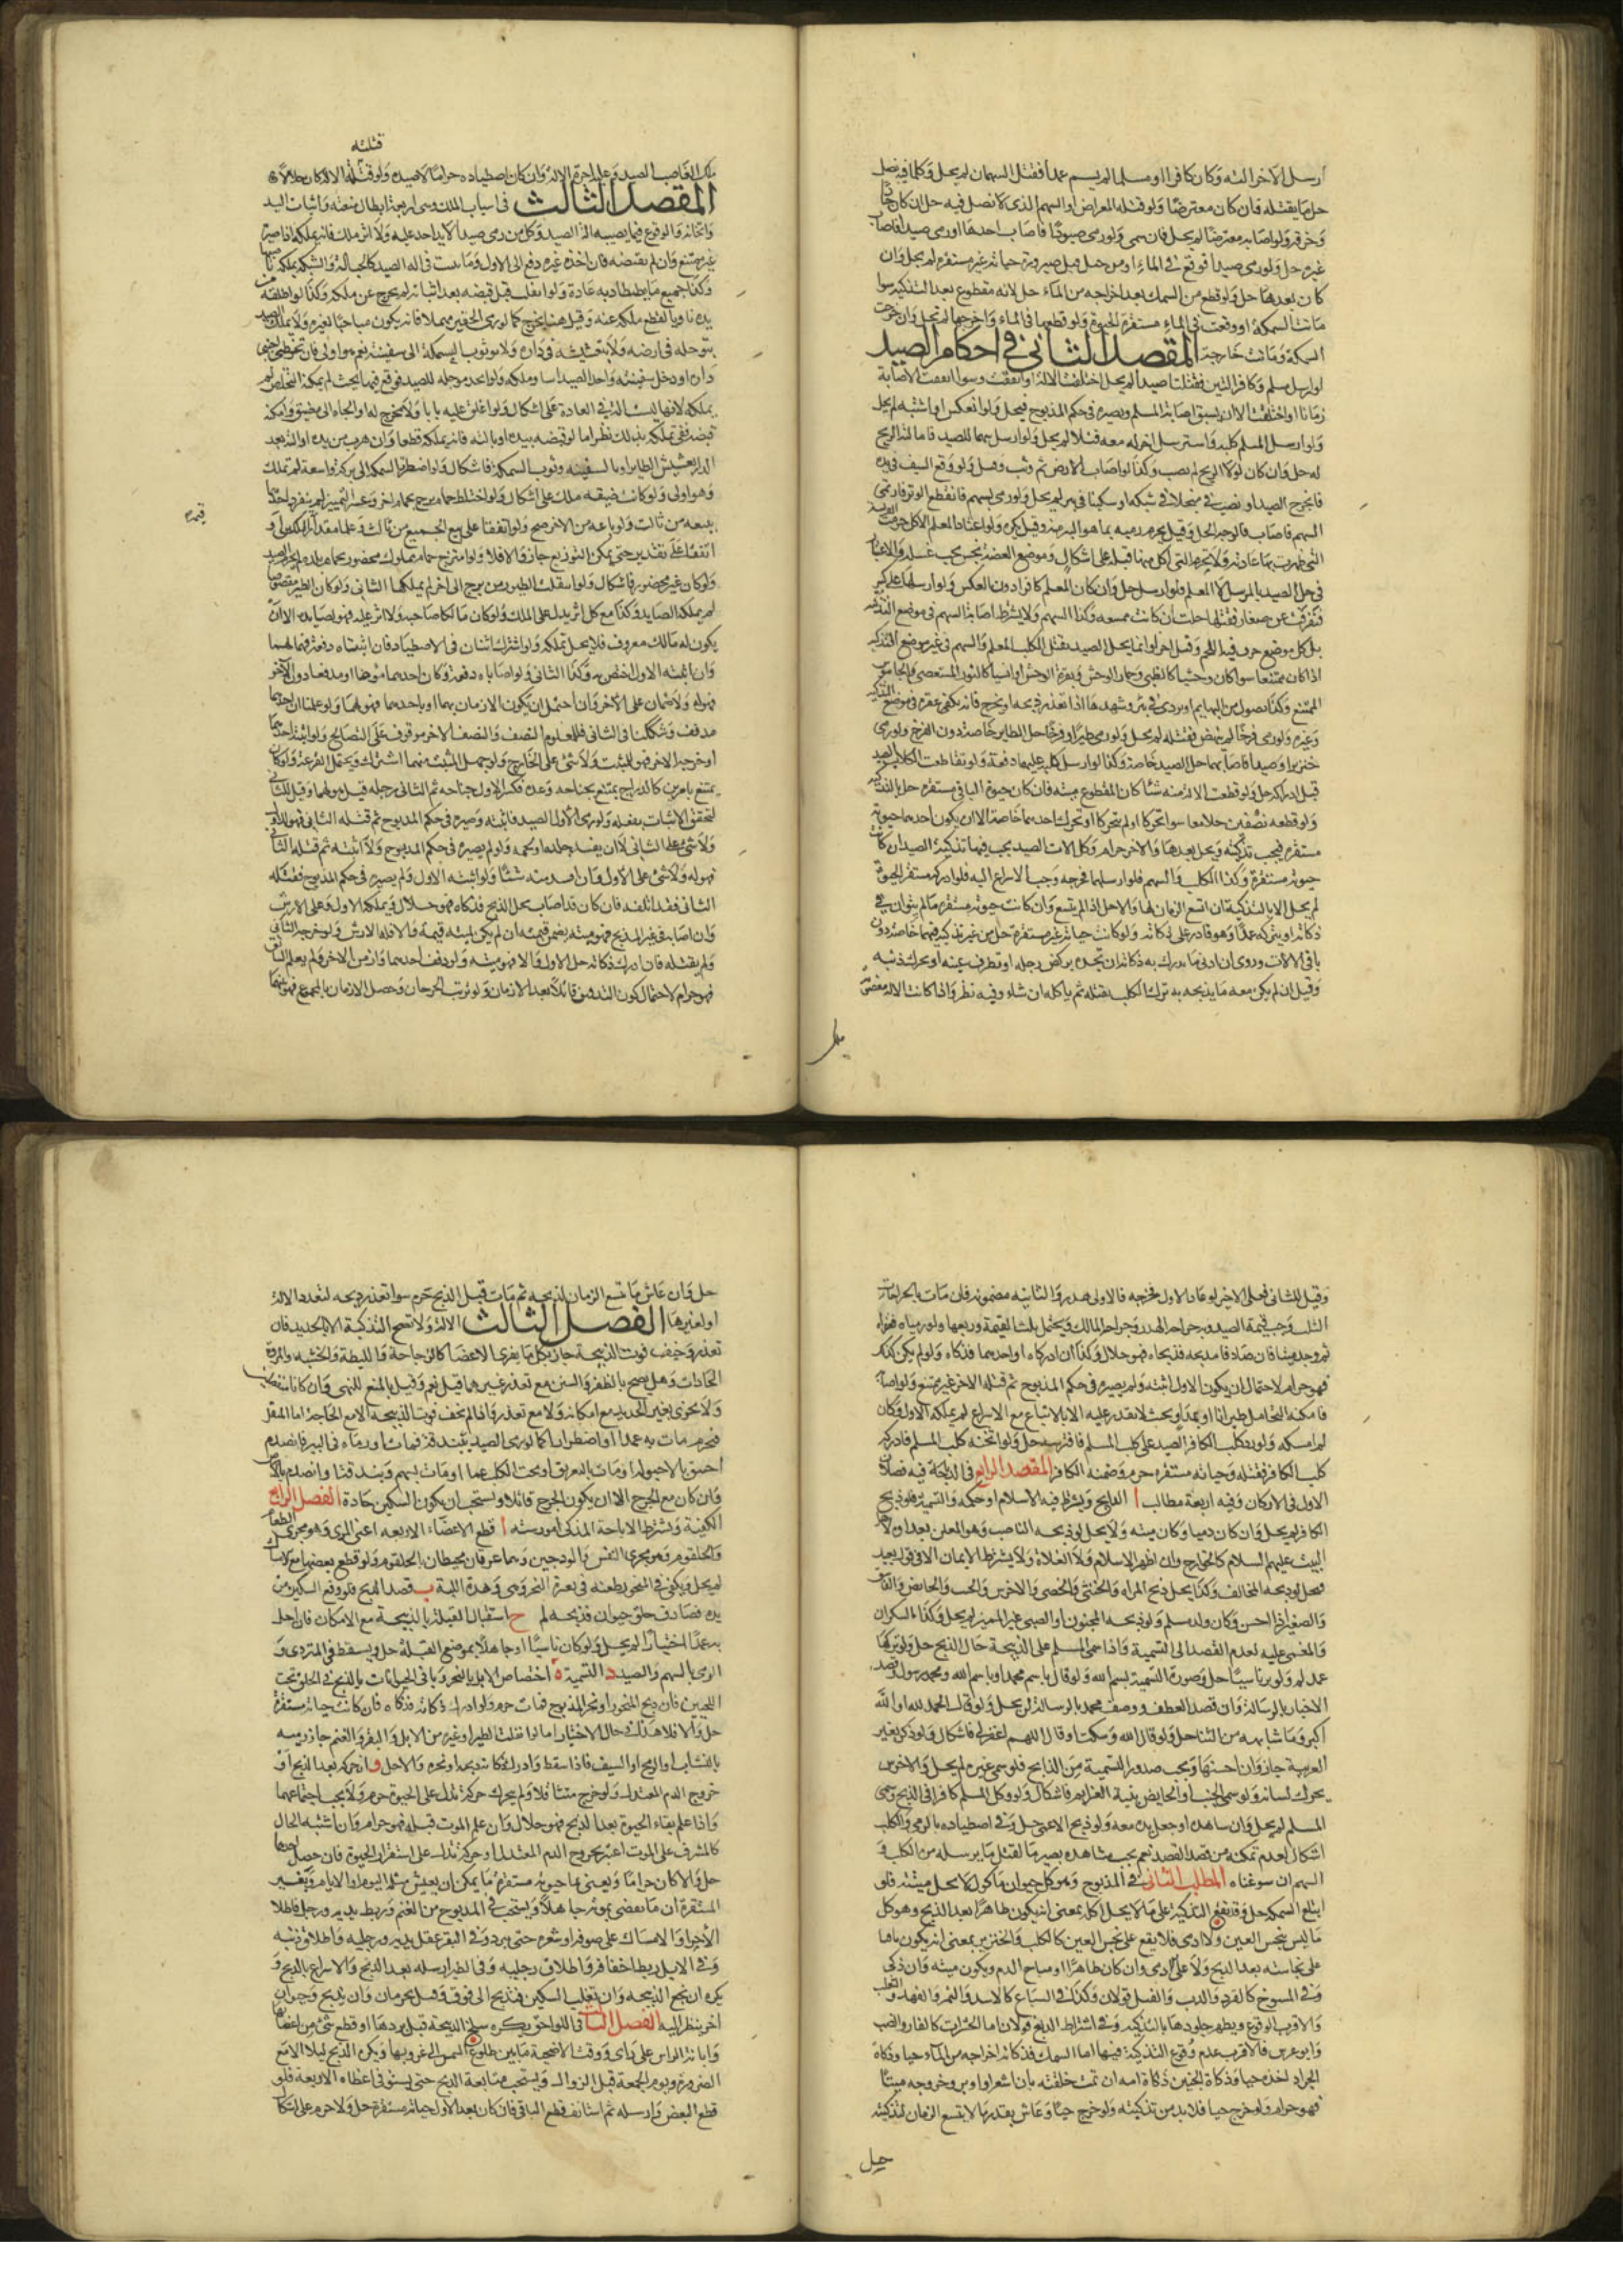 ارسل الاخر آلته وكان كافرا او مسلما لم يسم عمدا فقتل السهمان لم يحل وكلما فيه نصل
حل ما يقتله فان كان معترضا ولو قتله المعراض او السهم الذي لا نصل فيه حل ان كان حادا
وخرقه ولو اصابه معترضا لم يحل فان سمى ولو رمى صيودا فاصاب احدها او رمى صيدا فاصاب
غيره حل ولو رمى صيدا فوقع في الماء او من جبل قبل صيرورة حياته غير مستقرة لم يحل وان
كان بعدها حل ولو قطع من السمك بعد اخراجه من الماء حل لانه مقطوع بعد التذكية سوا
ماتت السمكة او وقعت في الماء مستقرة الحيوة ولو قطعها في الماء واخرجها لم تحل وان خرجت
السمكة وماتت خارجة المقصد الثاني في احكام الصيد
لو ارسل مسلم وكافر آلتين فقتلتا صيدا لم يحل اختلفت الآلة او اتفقت وسوا اتفقت الاصابة
زمانا او اختلفت الا ان يسبق اصابة المسلم ويصيره في حكم المذبوح فيحل ولو انعكس او اشتبه لم يحل
ولو ارسل المسلم كلبه واسترسل اخر له معه فقتلا لم يحل ولو ارسل سهما للصيد فاماله الريح
له حل وان كان لولا الريح لم يصب وكذا لو اصاب الارض ثم وثب وقتل ولو وقع السيف في يده
فانجرح الصيد او نصب في منجلا في شبكة او سكينا في بئر لم يحل ولو رمى بسهم فانقطع الوتر فارتمى
السهم فاصاب فالوجه الحل وقيل يحرم رميه بما هو اكبر منه وقيل يكره ولو اعتاد المعلم الاكل حرمت الفريسة
التي ظهرت بها عادته ولا يحرم التي اكل منها قبله على اشكال وموضع العضة نجس يجب غسله والاعتبار
في حل الصيد بالمرسل لا المعلم فلو ارسل حل وان كان المعلم كافرا دون العكس ولو ارسلها على كبير
فتفرقت عن صغار فقتلها حلت ان كانت ممتنعة وكذا السهم ولا يشترط اصابة السهم في موضع التذكية
بل كل موضع جرحه فيه اللحم وقتل اجزأ وانما يحل الصيد بقتل الكلب المعلم والسهم في غير موضع التذكية
اذا كان ممتنعا سوا كان وحشيا كالظبي وحمار الوحش وبقرة الوحش او انسيا كالثور المستعصي والجاموس
الممتنع وكذا يصول من البهايم او تردى في بئر وشبهها اذا تعذر ذبحه او نحره فانه يكفي عقره في موضع التذكية
وغيره ولو رمى فرخا لم ينهض فقتله لم يحل ولو رمى طيرا وفرخا حل الطاير خاصة دون الفرخ ولو رمى
خنزيرا وصيدا فاصابهما حل الصيد خاصة وكذا لو ارسل كلبه عليهما دفعة ولو تقاطعت الكلاب الصيد
قبل ادراكه حل ولو قطعت الآلة منه شيئا كان المقطوع ميتة فان كان حيوة الباقي مستقرة حل بالتذكية
ولو قطعه نصفين حلا معا سوا تحركا او لم يتحركا او تحرك احدهما خاصة الا ان يكون احدهما حيوته
مستقرة فيجب تذكيته ويحل بعدها والاخر حرام وكل آلات الصيد يجب فيها تذكية الصيد ان كانت
حيوته مستقرة وكذا الكلب والسهم فلو ارسلهما فجرحه وجب الاسراع اليه فلو ادركه مستقر الحيوة
لم يحل الا بالتذكية ان اتسع الزمان لها والا حل اذا لم يتسع وان كانت حيوته مستقرة ما لم يتوان في
ذكاته او يتركه عمدا وهو قادر على ذكاته ولو كانت حياته غير مستقرة حل من غير تذكية فيهما خاصة دون
باقي الآلات وروى ان ادنى ما يدرك به ذكاته ان تجده يركض رجله او تطرف عينه او يحرك ذنبه
وقيل ان لم يكن معه ما يذبحه به ترك الكلب يقتله ثم ياكله ان شاء وفيه نظر واذا كانت الآلة مغصوبة
ملك
قتلته
ملك الغاصب الصيد وعليه اجرة الآلة وان كان اصطياده حراما لا صيده ولو قتلته الآلة كان حلالا
المقصد الثالث في اسباب الملك وهي اربعة ابطال منعته واثبات اليد
واثخانه والوقوع فيما يصيبه آلة الصيد وكل من رمى صيدا لا يد لاحد عليه ولا اثر ملك فانه يملكه اذا صيره
غير ممتنع وان لم يقبضه فان اخذه غيره دفع الى الاول وما يثبت في آلة الصيد كالحبالة والشبكة يملكه ناصبها
وكذا جميع ما يصطاد به عادة ولو انفلت قبل قبضه بعد اثباته لم يخرج عن ملكه وكذا لو اطلقه من
يده ناويا لقطع ملكه عنه وقيل هنا يخرج كما لو رمى الحقير مهملا فانه يكون مباحا لغيره ولا يملك الصيد
بتوحله في ارضه ولا بتعشيشه في داره ولا بوثوب السمكة الى سفينته نعم هو اولى فان تخطى اجنبي
داره او دخل سفينته واخذ الصيد اساء وملكه ولو اتخذ موحلة للصيد فوقع فيها بحيث لم يمكنه التخلص لم
يملكه لانها ليست آلة في العادة على اشكال ولو اغلق عليه بابا ولا مخرج له او الجأه الى مضيق وامكنه
قبضه ففي تملكه بذلك نظر اما لو قبضه بيده او بآلته فانه يملكه قطعا وان هرب من يده او آلته بعد
الدار لتعشيش الطاير او بالسفينة وثوب السمكة فاشكال ولو اضطر السمكة الى بركة واسعة لم تملك
وهو اولى ولو كانت ضيقة ملك على اشكال ولو اختلط حمام برج بحمام اخر وعسر التمييز لم ينفرد احدهما
ببيعه من ثالث ولو باعه من الاخر صح ولو اتفقا على بيع الجميع من ثالث وعلما مقدار الملكين او
اتفقا على تقدير حتى يمكن التوزيع جاز والا فلا ولو امتزج حمام مملوك محصور بحمام بلدة لم يحرم الصيد
ولو كان غير محصور فاشكال ولو انتقلت الطيور من برج الى اخر لم يملكها الثاني ولو كان الطير مقصوصا
لم يملكه الصايد وكذا مع كل اثر يدل على الملك ولو كان مالكا جناحه ولا اثر عليه فهو لصايده الا ان
يكون له مالك معروف فلا يحل تملكه ولو اشترك اثنان في الاصطياد فان اثبتاه دفعة فهو لهما
وان اثبته الاول اختص به وكذا الثاني ولو اصاباه دفعة وكان احدهما مزمنا او مدففا دون الاخر
فهو له ولا ضمان على الاخر وان احتمل ان يكون الازمان بهما او باحدهما فهو لهما ولو علمنا ان احدهما
مدفف وشككنا في الثاني فللمعلوم النصف والنصف الاخر موقوف على التصالح ولو اثبته احدهما
او جرحه الاخر فهو للمثبت ولا شيء على الجارح ولو جهل المثبت منهما اشترك ويحتمل القرعة ولو كان
يمتنع بامرين كالدراج يمتنع بجناحه وعدوه فكسر الاول جناحه ثم الثاني رجله قيل هو لهما وقيل للثاني
لتحقق الاثبات بفعله ولو رمى الاول الصيد فاثبته وصيره في حكم المذبوح ثم قتله الثاني فهو للاول
ولا شيء على الثاني الا ان يفسد جلده او لحمه ولو لم يصيره في حكم المذبوح ولا اثبته ثم قتله الثاني
فهو له ولا شيء على الاول وان افسد منه شيئا ولو اثبته الاول ولم يصيره في حكم المذبوح فقتله
الثاني فقد اتلفه فان كان قد اصاب محل الذبح فذكاه فهو حلال ويملكه الاول وعلى الثاني الارش
وان اصابه في غير المذبح فهو ميتة يضمن قيمته ان لم يكن لميتته قيمة والا فله الارش ولو جرحه الثاني
ولم يقتله فان ادرك ذكاته حل للاول والا فهو ميتة ولو دفف احدهما وازمن الاخر ولم يعلم السابق
فهو حرام لاحتمال كون التدفيف قاتلا بعد الازمان ولو ترتب الجرحان وحصل الازمان بالمجموع فهو بينهما
قيمة
وقيل للثاني فعلى الاخير لو عاد الاول فجرحه فالاولى هدر والثانية مضمونة فان مات بالجراحات
الثلث وجب قيمة الصيد وبه جراحة الهدر وجراحة المالك ويحتمل ثلث القيمة وربعها ولو رمياه فعقراه
ثم وجد ميتا فان صادفا مذبحه فذبحاه فهو حلال وكذا ان ادركاه او احدهما فذكاه ولو لم يكن كذلك
فهو حرام لاحتمال ان يكون الاول اثبته ولم يصيره في حكم المذبوح ثم قتله الاخر غير ممتنع ولو اصابه
فامكنه التحامل طيرانا او عدوا بحيث لا يقدر عليه الا بالاتباع مع الاسراع لم يملكه الاول وكان
لمن امسكه ولو رد كلب الكافر الصيد على كلب المسلم فافترسه حل ولو اثخنه كلب المسلم فادركه
كلب الكافر فقتله وحياته مستقرة حرم وضمنه الكافر المقصد الرابع في الذباحة فيه فصلان
الاول في الاركان وفيه اربعة مطالب ا الذابح ويشترط فيه الاسلام او حكمه والتسمية فلو ذبح
الكافر لم يحل وان كان ذميا وكان ميتة ولا يحل لو ذبحه الناصب وهو المعلن بعداوة اهل
البيت عليهم السلام كالخوارج وان اظهر الاسلام ولا الغلاة ولا يشترط الايمان الا في قول بعيد
فيحل لو ذبحه المخالف وكذا يحل ذبح المراة والخنثى والخصي والاخرس والجنب والحايض والفاسق
والصغير اذا احسن وكان ولد مسلم ولو ذبحه المجنون او الصبي غير المميز لم يحل وكذا السكران
والمغمى عليه لعدم القصد الى التسمية واذا سمى المسلم على الذبيحة حال الذبح حل ولو تركها
عمدا لم ولو تركها ناسيا حل وصورة التسمية بسم الله ولو قال باسم محمد او باسم الله ومحمد رسول الله قصد
الاخبار بالرسالة وان قصد العطف ووصف محمد بالرسالة لم يحل ولو قال الحمد لله او الله
اكبر وما شابهه من الثنا حل ولو قال الله وسكت او قال اللهم اغفر لي فاشكال ولو ذكر بغير
العربية جاز وان احسنها ويجب صدور التسمية من الذابح فلو سمى غيره لم يحل والاخرس
يحرك لسانه ولو سمى الجنب او الحايض بنية العزايم فاشكال ولو وكل المسلم كافرا في الذبح وسمى
المسلم لم يحل وان شاهده او جعل يده معه ولو ذبح الاعمى حل وفي اصطياده بالرمي والكلب
اشكال لعدم تمكنه من قصد الصيد نعم يجب مشاهدة بصير ما لقتل ما يرسله من الكلب و
السهم ان سوغناه المطلب الثاني في المذبوح وهو كل حيوان ماكول لا يحل ميتته فلو
ابتلع السمكة حل وقد يقع التذكية على ما لا يحل اكله بمعنى انه يكون طاهرا بعد الذبح وهو كل
ما ليس بنجس العين ولا ادمي فلا يقع على نجس العين كالكلب والخنزير بمعنى انه يكون باقيا
على نجاسته بعد الذبح ولا على ادمي وان كان طاهرا او مباح الدم ويكون ميتة وان ذكي
وفي المسوخ كالقرد والدب والفيل قولان وكذلك في السباع كالاسد والنمر والفهد والثعلب
والاقرب الوقوع ويطهر جلودها بالتذكية وفي اشتراط الدبغ قولان اما الحشرات كالفار والضب
وابن عرس فالاقرب عدم وقوع التذكية فيها اما السمك فذكاته اخراجه من الماء حيا وذكاة
الجراد اخذه حيا وذكاة الجنين ذكاة امه ان تمت خلقته بان اشعر او اوبر وخروجه ميتا
فهو حرام ولو خرج حيا فلا بد من تذكيته ولو خرج حيا وعاش بقدر ما لا يتسع الزمان لتذكيته
حل
حل وان عاش ما يتسع الزمان لذبحه ثم مات قبل الذبح حرم سوا تعذر ذبحه لتعذر الآلة
او لغيرها الفصل الثالث الآلة ولا تصح التذكية الا بالحديد فان
تعذر وخيف فوت الذبيحة جاز بكل ما يفري الاعضا كالزجاجة والليطة والخشبة والمروة
الحادات وهل يصح بالظفر والسن مع تعذر غيرهما قيل نعم وقيل بالمنع للنهي وان كانا منفصلين
ولا يجزى بغير الحديد مع امكانه ولا مع تعذره اذا لم يخف فوت الذبيحة الا مع الحاجة اما المثقل
فيحرم ما مات به عمدا او اضطرارا كما لو رمى الصيد ببندقة فمات او رماه في البير فانصدم
اختنق بالاحبولة او مات بالتعريق او تحت الكلب غما او مات بسهم وبندقة او انصدم بالارض
وان كان مع الجرح الا ان يكون الجرح قاتلا ويستحب ان يكون السكين حادة الفصل الرابع
الكيفية ويشترط لاباحة المذكى امور ستة ا قطع الاعضاء الاربعة اعني المرى وهو مجرى الطعام
والحلقوم وهو مجرى النفس والودجين وهما عرقان محيطان بالحلقوم ولو قطع بعضها مع الامكان
لم يحل ويكفي في المنحور طعنه في ثغرة النحر وهي وهدة اللبة ب قصد الذبح فلو وقع السكين من
يده فصادف حلق حيوان فذبحه لم ج استقبال القبلة بالذبيحة مع الامكان فان اخل
به عمدا اختيارا لم يحل ولو كان ناسيا او جاهلا بموضع القبلة حل ويسقط في المتردي و
الرمي بالسهم والصيد د التسمية ه اختصاص الابل بالنحر وباقي الحيوانات بالذبح في الحلق تحت
اللحيين فان ذبح المنحور او نحر المذبوح فمات حرم ولو ادرك ذكاته فذكاه فان كانت حياته مستقرة
حل والا فلا هذا في حال الاختيار اما لو انفلت الطير او غيره من الابل والبقر والغنم جاز رميه
بالنشاب او الرمح او السيف فاذا سقط وادرك ذكاته ذبحه او نحره والا حل و الحركة بعد الذبح او
خروج الدم المعتدل ولو خرج متثاقلا ولم يتحرك حركة تدل على الحيوة حرم ولا يجب اجتماعهما
واذا علم بقاء الحيوة بعد الذبح فهو حلال وان علم الموت قبله فهو حرام وان اشتبه الحال
كالمشرف على الموت اعتبر بخروج الدم المعتدل او حركة تدل على استقرار الحيوة فان حصل احدهما
حل والا كان حراما ويعنى بما حيوته مستقرة ما يمكن ان يعيش مثله اليوم او الايام وبغير
المستقرة ان ما يقضى بموته عاجلا ويستحب في المذبوح من الغنم ربط يديه ورجل واطلاق
الاخرى والامساك على صوفه او شعره حتى يبرد وفي البقر عقل يديه ورجليه واطلاق ذنبه
وفي الابل ربط اخفافه واطلاق رجليه وفي الطير ارساله بعد الذبح والاسراع بالذبح و
يكره ان ينخع الذبيحة وان يقلب السكين فيذبح الى فوق وقيل يحرمان وان يذبح وحيوان
اخر ينظر اليه الفصل الثاني في اللواحق يكره سلخ الذبيحة قبل بردها او قطع شيء من اعضائها
وابانة الراس على رأي ووقت الاضحية ما بين طلوع الشمس الى غروبها ويكره الذبح ليلا الا مع
الضرورة ويوم الجمعة قبل الزوال ويستحب متابعة الذبح حتى يستوفي اعضاه الاربعة فلو
قطع البعض وارسله ثم استانف قطع الباقي فان كان بعد الاول حياته مستقرة حل والا حرم على اشكال